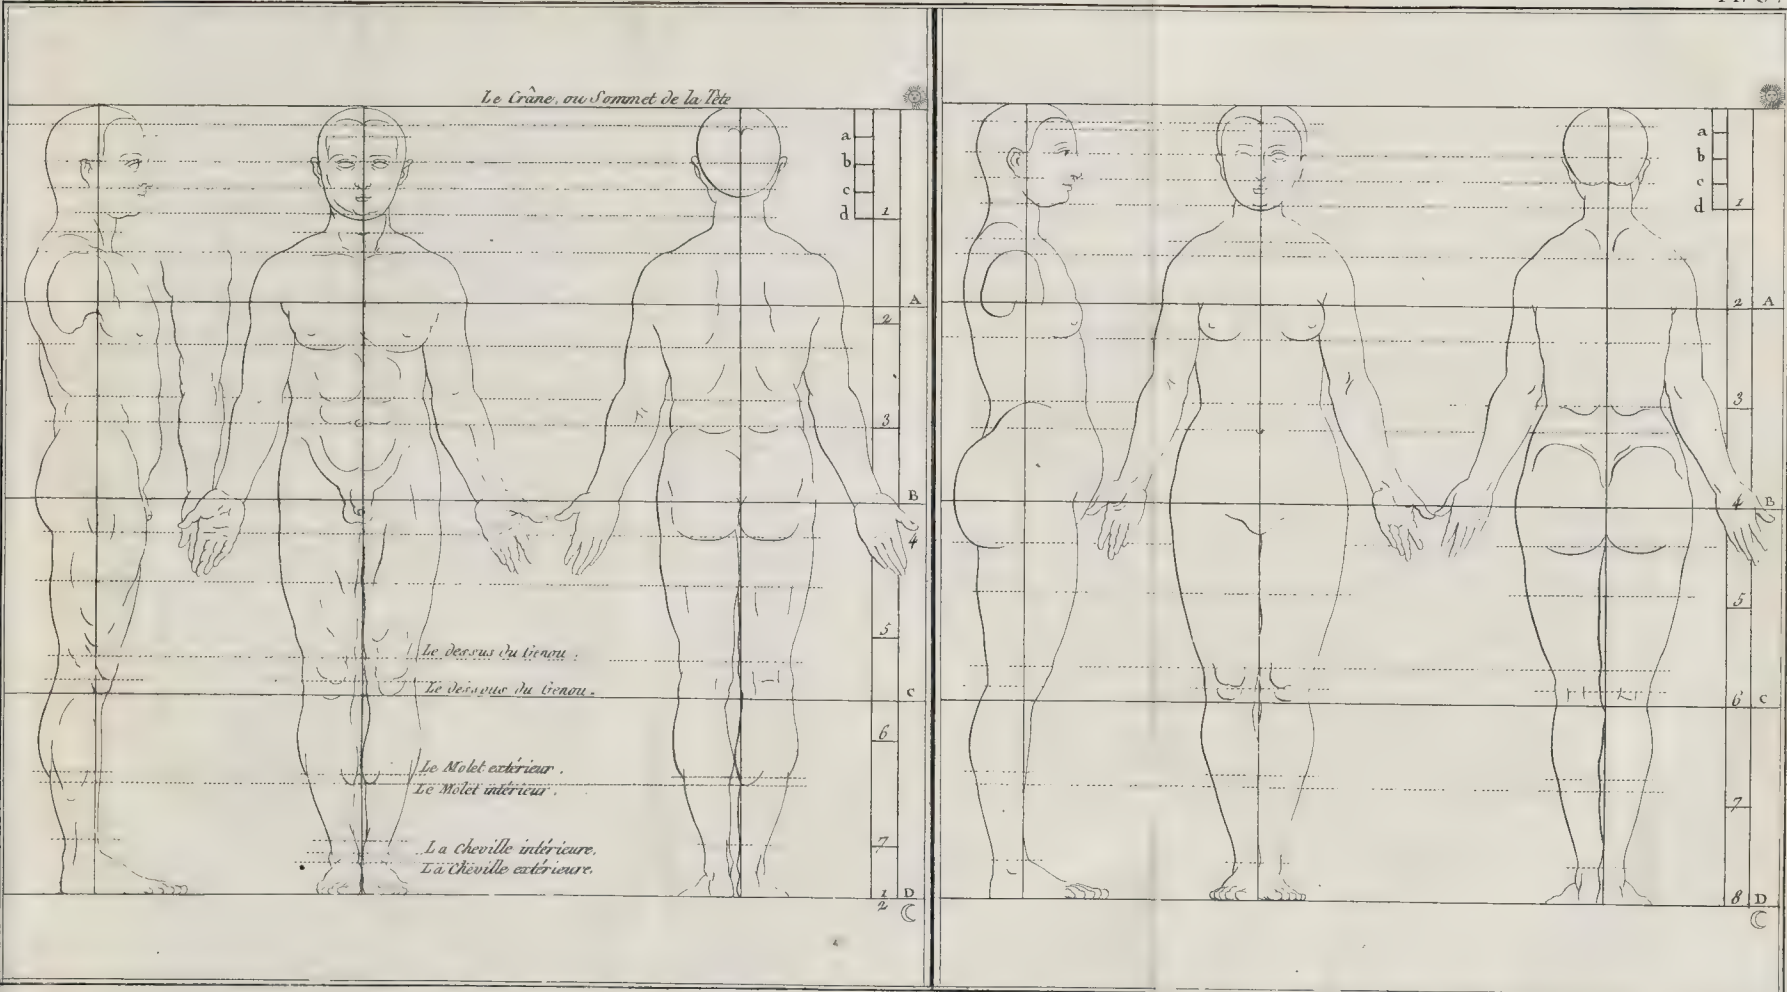 Le Crâne, ou Sommet de la Tête
a
b
c
d
1
A
2
3
B
4
Le dessus du Genou.
5
Le dessous du Genou.
C
6
Le Molet extérieur.
Le Molet intérieur.
La Cheville intérieure.
7
La Cheville extérieure.
1
2
D
a
b
c
d
1
2
A
3
4
B
5
6
C
7
8
D